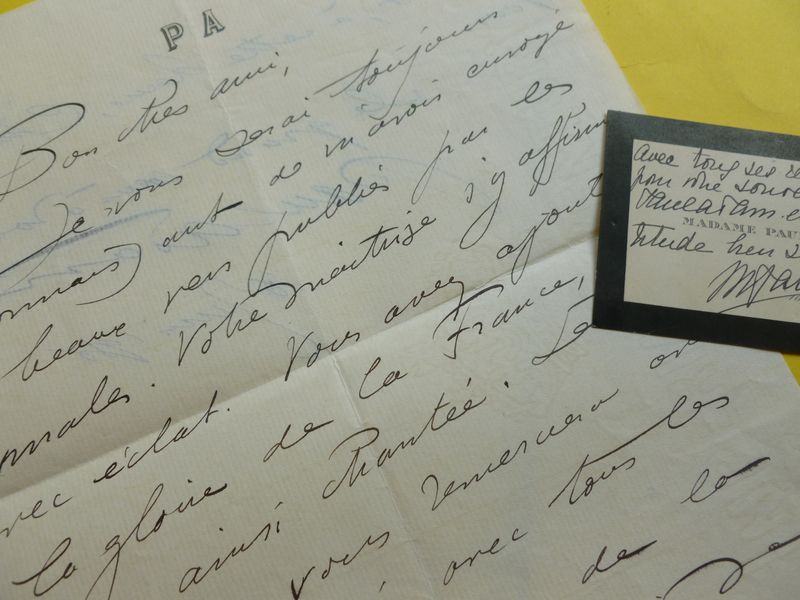 PA
Bon cher ami,
Je vous serai toujours
onnaissant de m'avoir envoyé
beaux vers publiés par les
nnales. Votre maîtrise s'y affirm
vec éclat. Vous avez ajout
la gloire de la France,
ainsi chantée. Le
vous remerciera
avec tous les
de la
avec tous ses re
pour votre souve
MADAME PAU
titude bien